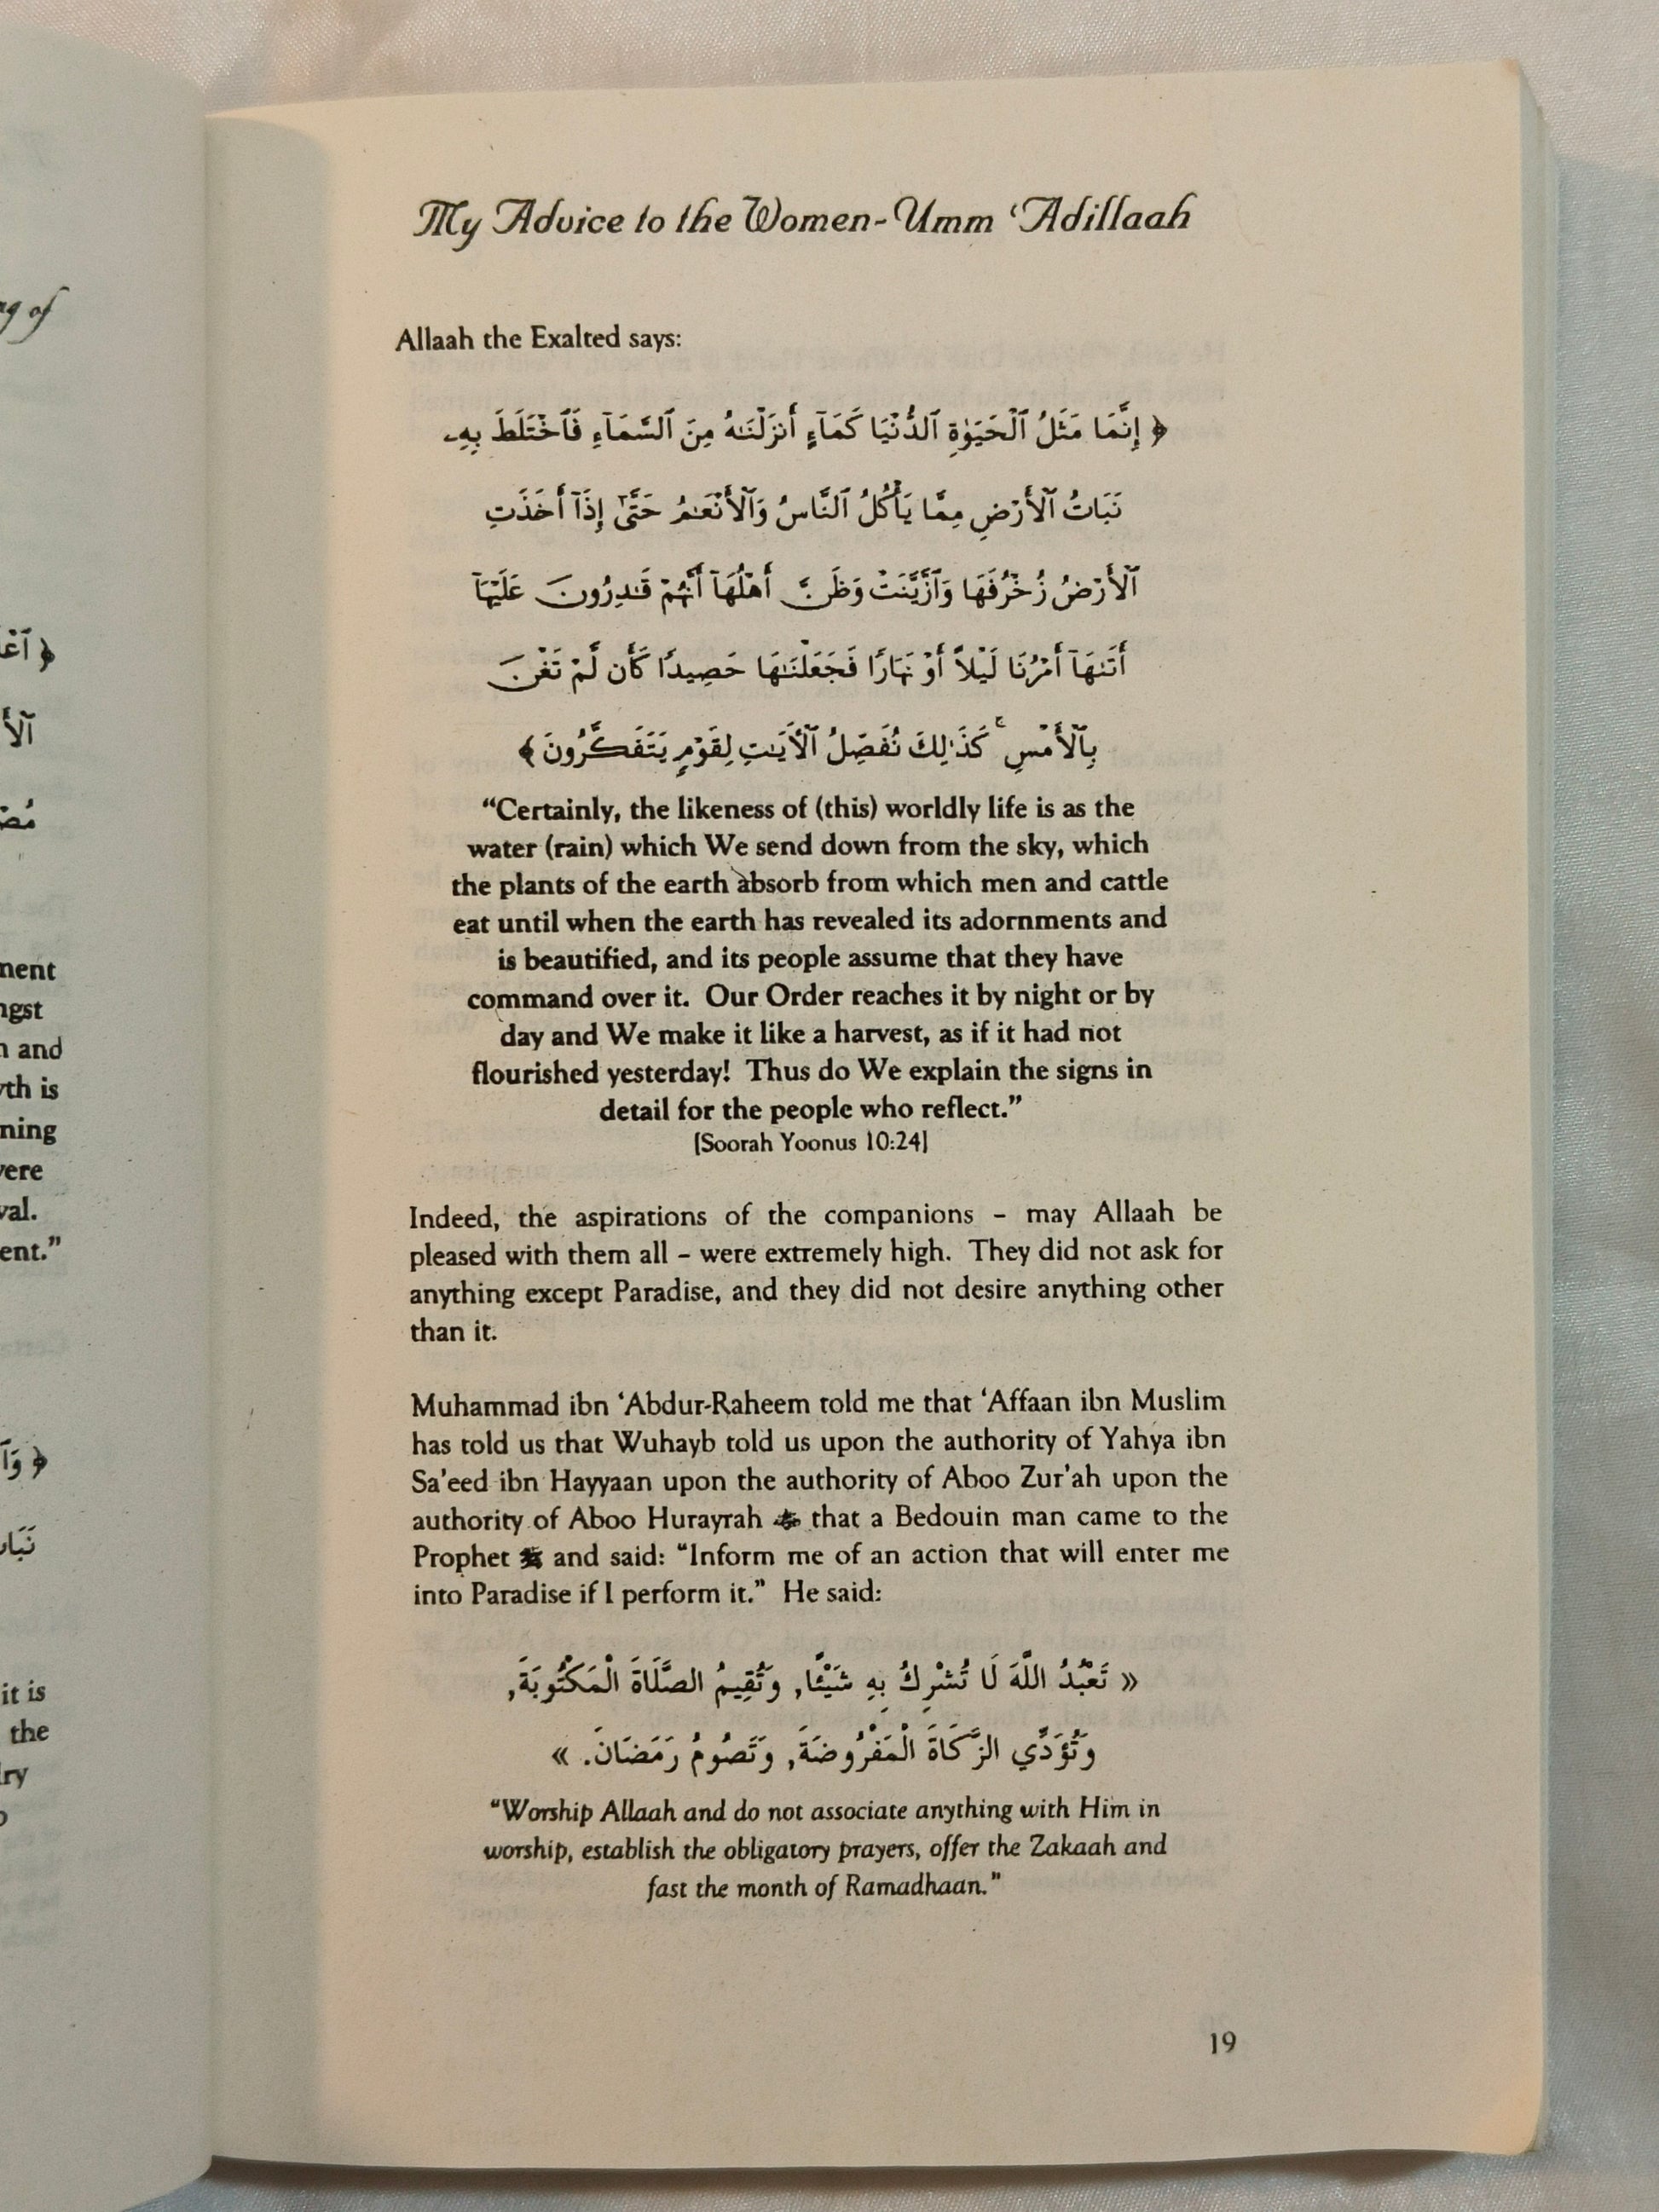 ng of
﴿ آعْ
آلْأَ
nent
ngst
n and
th is
ning
vere
val.
ent."
﴿ وَآ
نَبَا
it is
the
My Advice to the Women-Umm ‘Adillaah
Allaah the Exalted says:
﴿ إِنَّمَا مَثَلُ ٱلْحَيَوٰةِ ٱلدُّنْيَا كَمَآءٍ أَنزَلْنَـٰهُ مِنَ ٱلسَّمَآءِ فَٱخْتَلَطَ بِهِۦ
نَبَاتُ ٱلْأَرْضِ مِمَّا يَأْكُلُ ٱلنَّاسُ وَٱلْأَنْعَـٰمُ حَتَّىٰٓ إِذَآ أَخَذَتِ
ٱلْأَرْضُ زُخْرُفَهَا وَٱزَّيَّنَتْ وَظَنَّ أَهْلُهَآ أَنَّهُمْ قَـٰدِرُونَ عَلَيْهَآ
أَتَىٰهَآ أَمْرُنَا لَيْلاً أَوْ نَهَارًا فَجَعَلْنَـٰهَا حَصِيدًا كَأَن لَّمْ تَغْنَ
بِٱلْأَمْسِ ۚ كَذَٰلِكَ نُفَصِّلُ ٱلْأَيَـٰتِ لِقَوْمٍ يَتَفَكَّرُونَ ﴾
“Certainly, the likeness of (this) worldly life is as the
water (rain) which We send down from the sky, which
the plants of the earth absorb from which men and cattle
eat until when the earth has revealed its adornments and
is beautified, and its people assume that they have
command over it. Our Order reaches it by night or by
day and We make it like a harvest, as if it had not
flourished yesterday! Thus do We explain the signs in
detail for the people who reflect.”
[Soorah Yoonus 10:24]
Indeed, the aspirations of the companions – may Allaah be
pleased with them all – were extremely high. They did not ask for
anything except Paradise, and they did not desire anything other
than it.
Muhammad ibn ‘Abdur-Raheem told me that ‘Affaan ibn Muslim
has told us that Wuhayb told us upon the authority of Yahya ibn
Sa’eed ibn Hayyaan upon the authority of Aboo Zur’ah upon the
authority of Aboo Hurayrah that a Bedouin man came to the
Prophet ﷺ and said: “Inform me of an action that will enter me
into Paradise if I perform it.” He said:
« تَعْبُدُ اللَّهَ لَا تُشْرِكُ بِهِ شَيْئًا, وَتُقِيمُ الصَّلَاةَ الْمَكْتُوبَةَ,
وَتُؤَدِّي الزَّكَاةَ الْمَفْرُوضَةَ, وَتَصُومُ رَمَضَانَ. »
“Worship Allaah and do not associate anything with Him in
worship, establish the obligatory prayers, offer the Zakaah and
fast the month of Ramadhaan.”
19